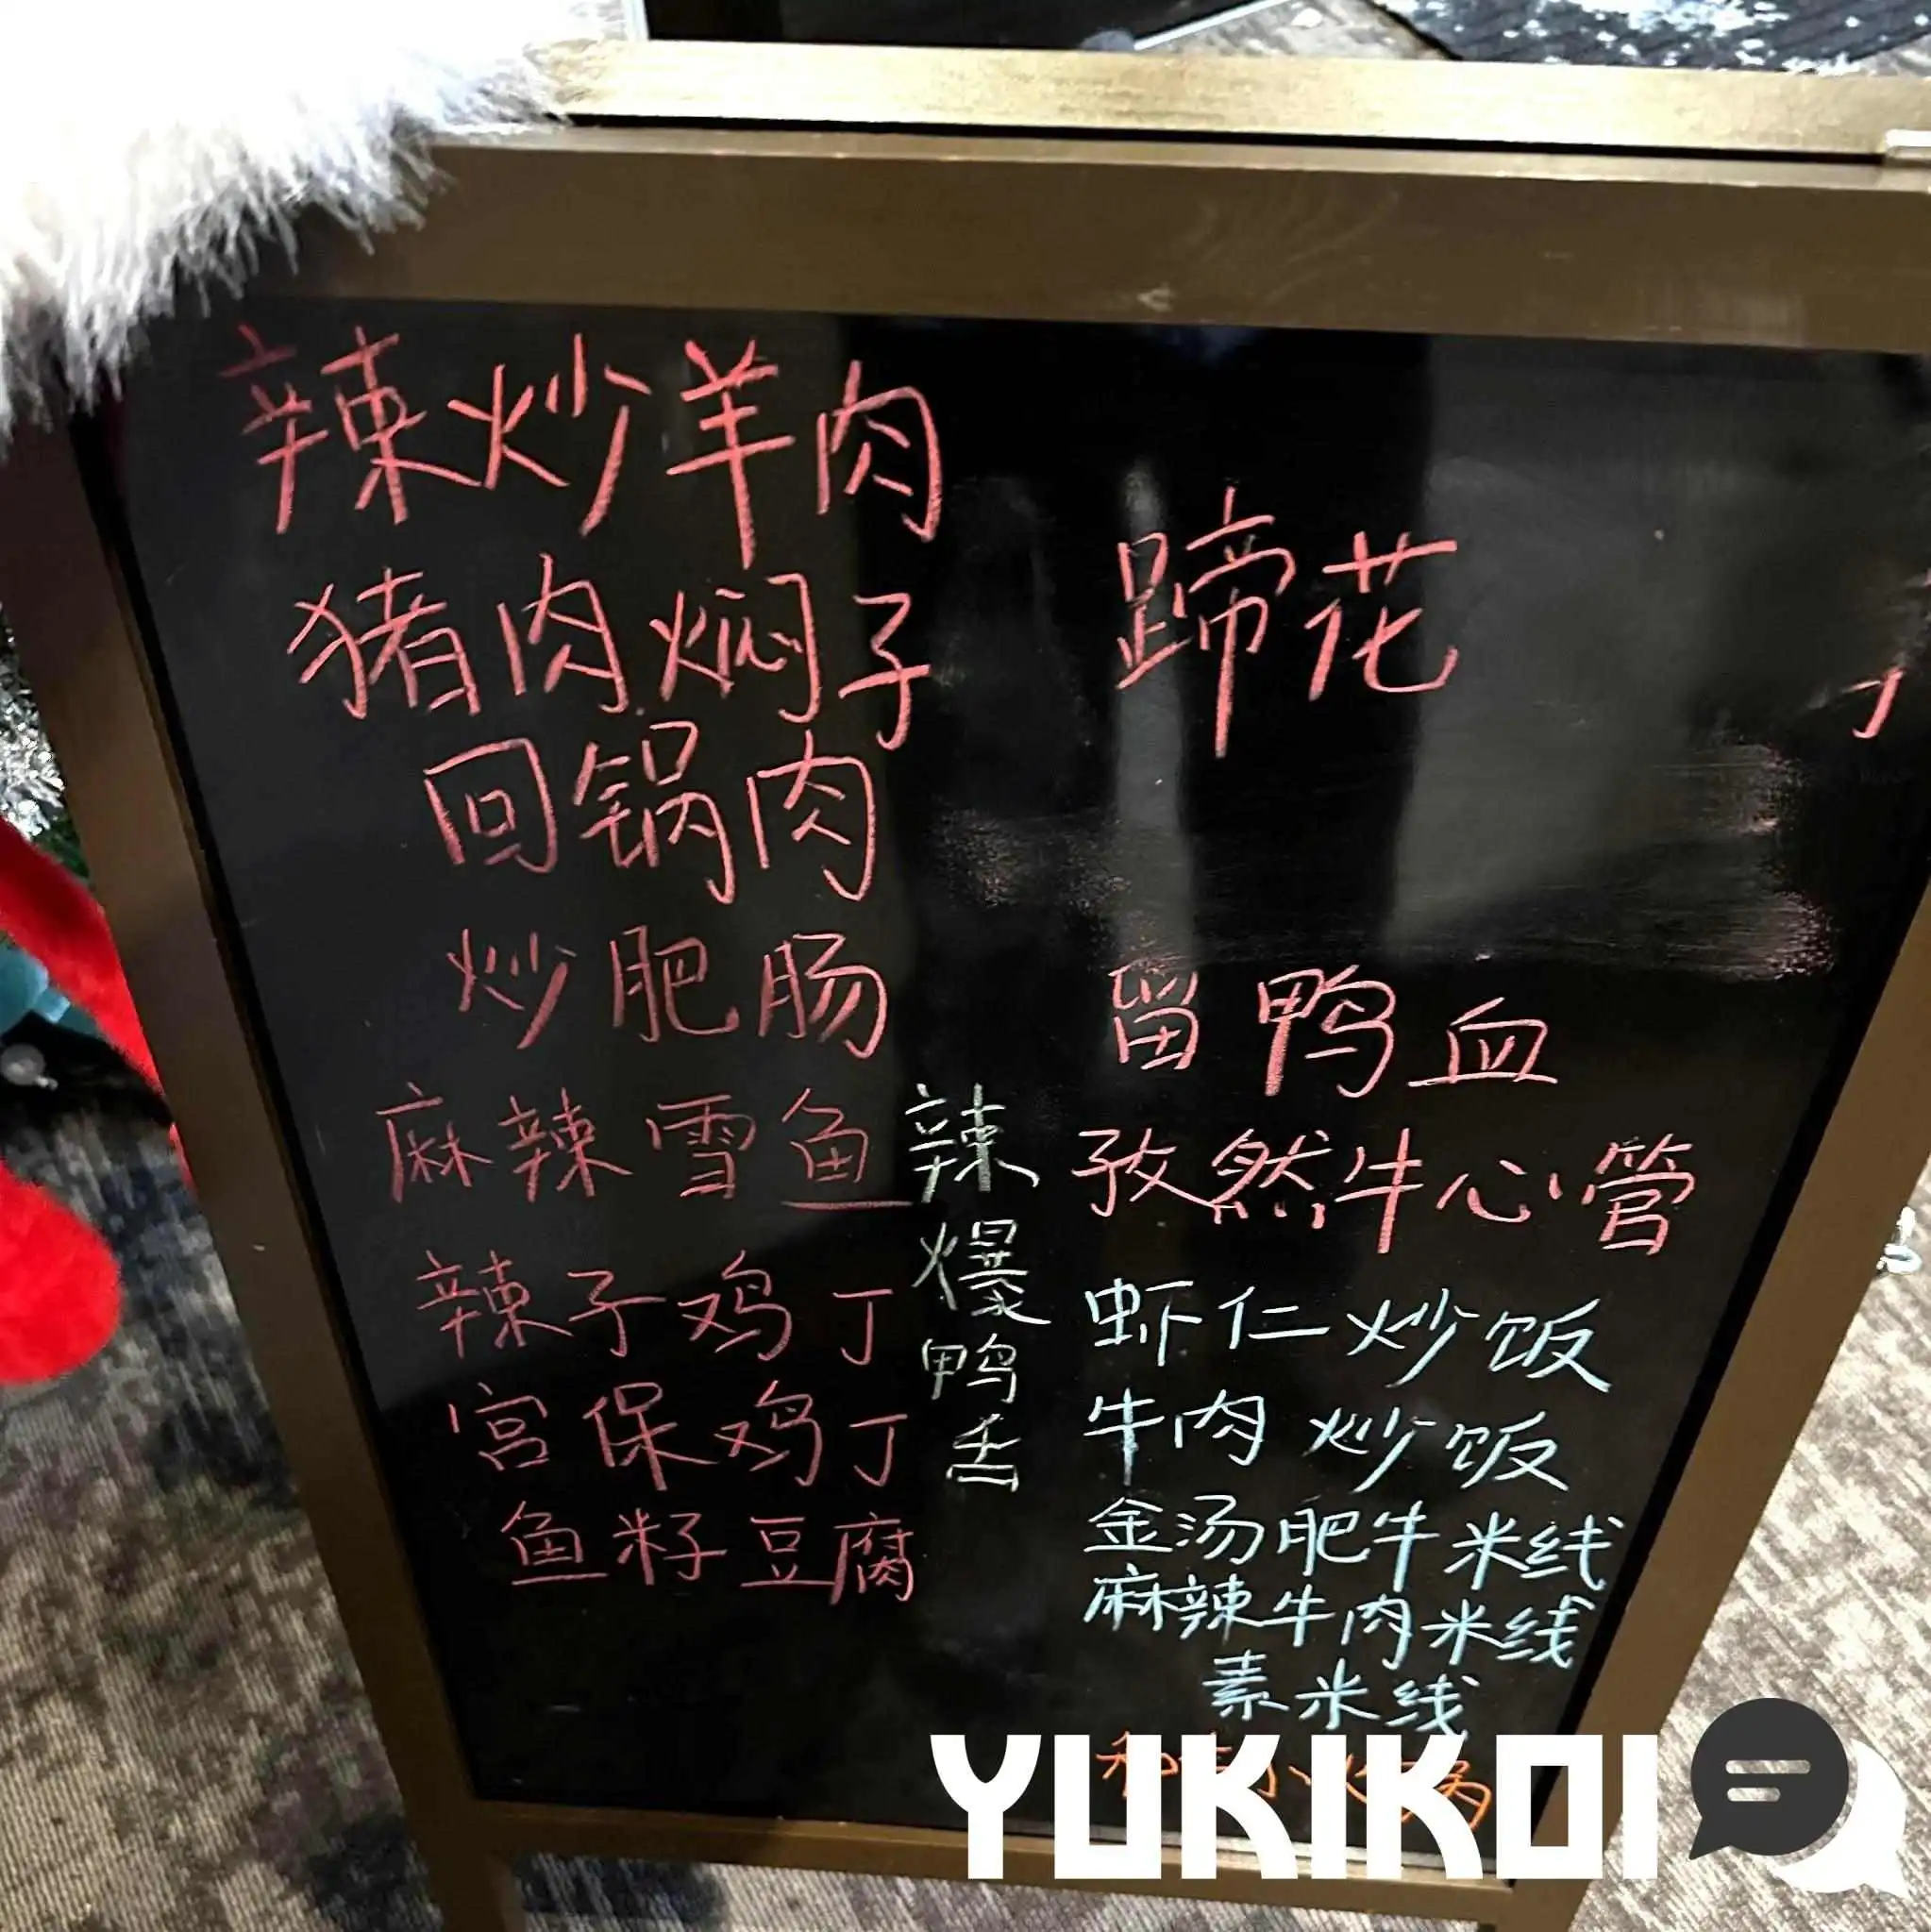 辣炒羊肉
猪肉焖子
回锅肉
炒肥肠
麻辣雪鱼
辣子鸡丁
宫保鸡丁
鱼籽豆腐
辣爆鸭舌
蹄花
留鸭血
孜然牛心管
虾仁炒饭
牛肉炒饭
金汤肥牛米线
麻辣牛肉米线
素米线
YUKIKOI